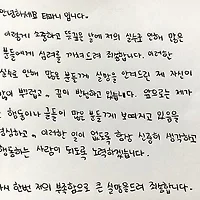 안녕하세요 티파니 입니다.
이렇게 소중하고 뜻깊은 날에 저의 실수로 인해 많은
분들에게 심려를 끼쳐드려 죄송합니다. 이러한
실수로 인해 많은 분들께 실망을 안겨드린 제 자신이
많이 부끄럽고, 깊이 반성하고 있습니다. 앞으로는 제가
행동이나 글들이 많은 분들께 보여지고 있음을
명심하고, 이러한 일이 없도록 항상 신중히 생각하고
행동하는 사람이 되도록 노력하겠습니다.
다시 한번 저의 부족함으로 큰 실망을드려 죄송합니다.